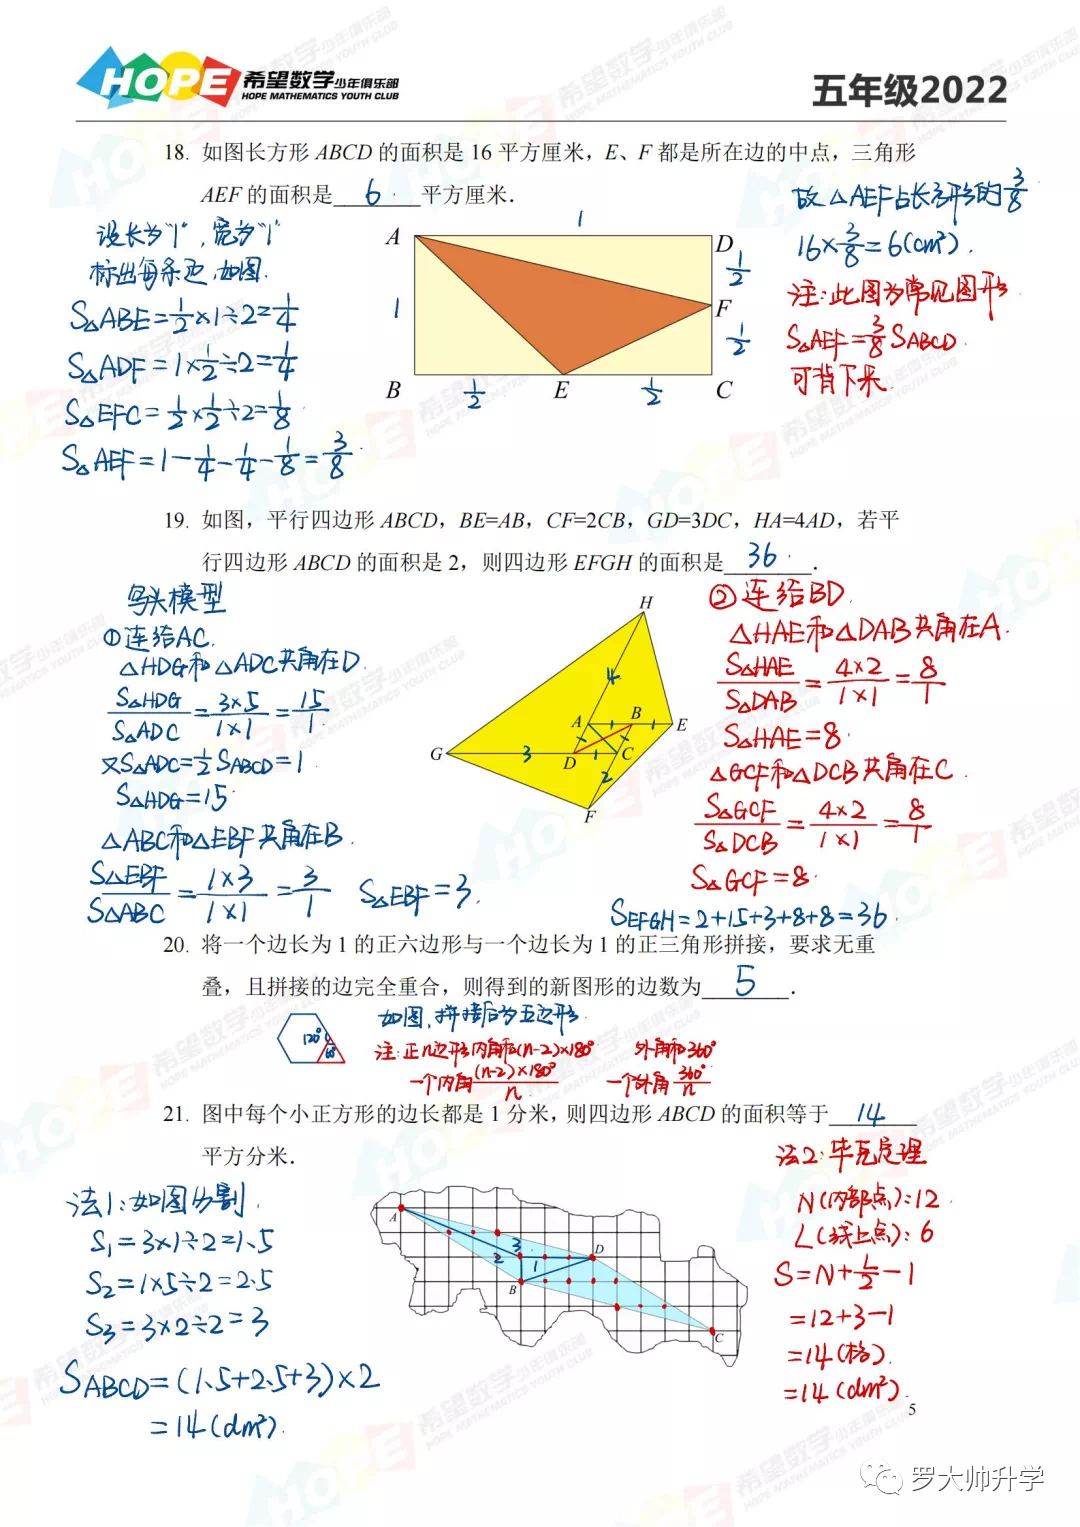 HOPE 希望数学少年俱乐部
HOPE MATHEMATICS YOUTH CLUB
五年级2022
18. 如图长方形 ABCD 的面积是 16 平方厘米，E、F 都是所在边的中点，三角形
AEF 的面积是 6 平方厘米．
设长为"1"，宽为"1"
标出每条边，如图.
S△ABE=1/2×1÷2=1/4
S△ADF=1×1/2÷2=1/4
S△EFC=1/2×1/2÷2=1/8
S△AEF=1-1/4-1/4-1/8=3/8
1
A
D
1/2
1
F
1/2
B
1/2
E
1/2
C
故△AEF占长方形的3/8
16×3/8=6(cm²).
注:此图为常见图形
S△AEF=3/8 SABCD.
可背下来.
19. 如图，平行四边形 ABCD，BE=AB，CF=2CB，GD=3DC，HA=4AD，若平
行四边形 ABCD 的面积是 2，则四边形 EFGH 的面积是 36 ．
鸟头模型
①连结AC.
△HDG和△ADC共角在D.
S△HDG/S△ADC=3×5/1×1=15/1
又S△ADC=1/2 SABCD=1
S△HDG=15
△ABC和△EBF共角在B.
S△EBF/S△ABC=1×3/1×1=3/1 S△EBF=3.
H
4
A
1
B
1
E
G
3
D
1
C
2
F
②连结BD.
△HAE和△DAB共角在A.
S△HAE/S△DAB=4×2/1×1=8/1
S△HAE=8
△GCF和△DCB共角在C.
S△GCF/S△DCB=4×2/1×1=8/1
S△GCF=8.
SEFGH=2+15+3+8+8=36.
20. 将一个边长为 1 的正六边形与一个边长为 1 的正三角形拼接，要求无重
叠，且拼接的边完全重合，则得到的新图形的边数为 5 ．
120°
60°
如图,拼接后为五边形.
注:正n边形内角和(n-2)×180° 外角和360°
一个内角(n-2)×180°/n 一个外角360°/n
21. 图中每个小正方形的边长都是 1 分米，则四边形 ABCD 的面积等于 14
平方分米．
法1:如图分割.
S1=3×1÷2=1.5
S2=1×5÷2=2.5
S3=3×2÷2=3
SABCD=(1.5+2.5+3)×2
=14(dm²).
A
3
D
2
1
B
C
法2:毕克定理
N(内部点):12.
L(线上点):6
S=N+L/2-1
=12+3-1
=14(格).
=14(dm²).
5
罗大帅升学